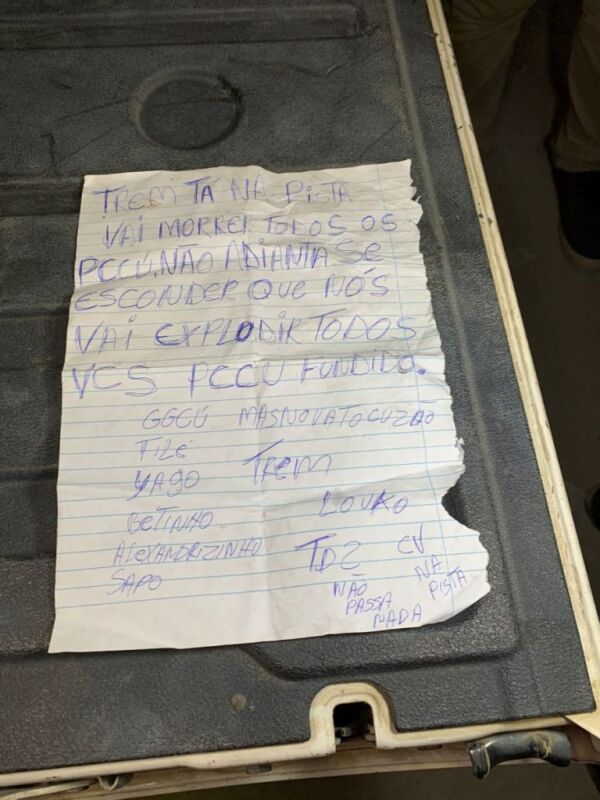 TREM TÁ NA PISTA
VAI MORRER TODOS OS
PCCÚ. NÃO ADIANTA SE
ESCONDER QUE NÓS
VAI EXPLODIR TODOS
VCS PCCU FUNDIDO.
GGEÚ MASNOVATO CUZÃO
TILÉ
YAGO TREM
BETINHO LOUKO
ALEXANDRIZINHO TD2 CV
SAPO NÃO NA
PASSA PISTA
NADA